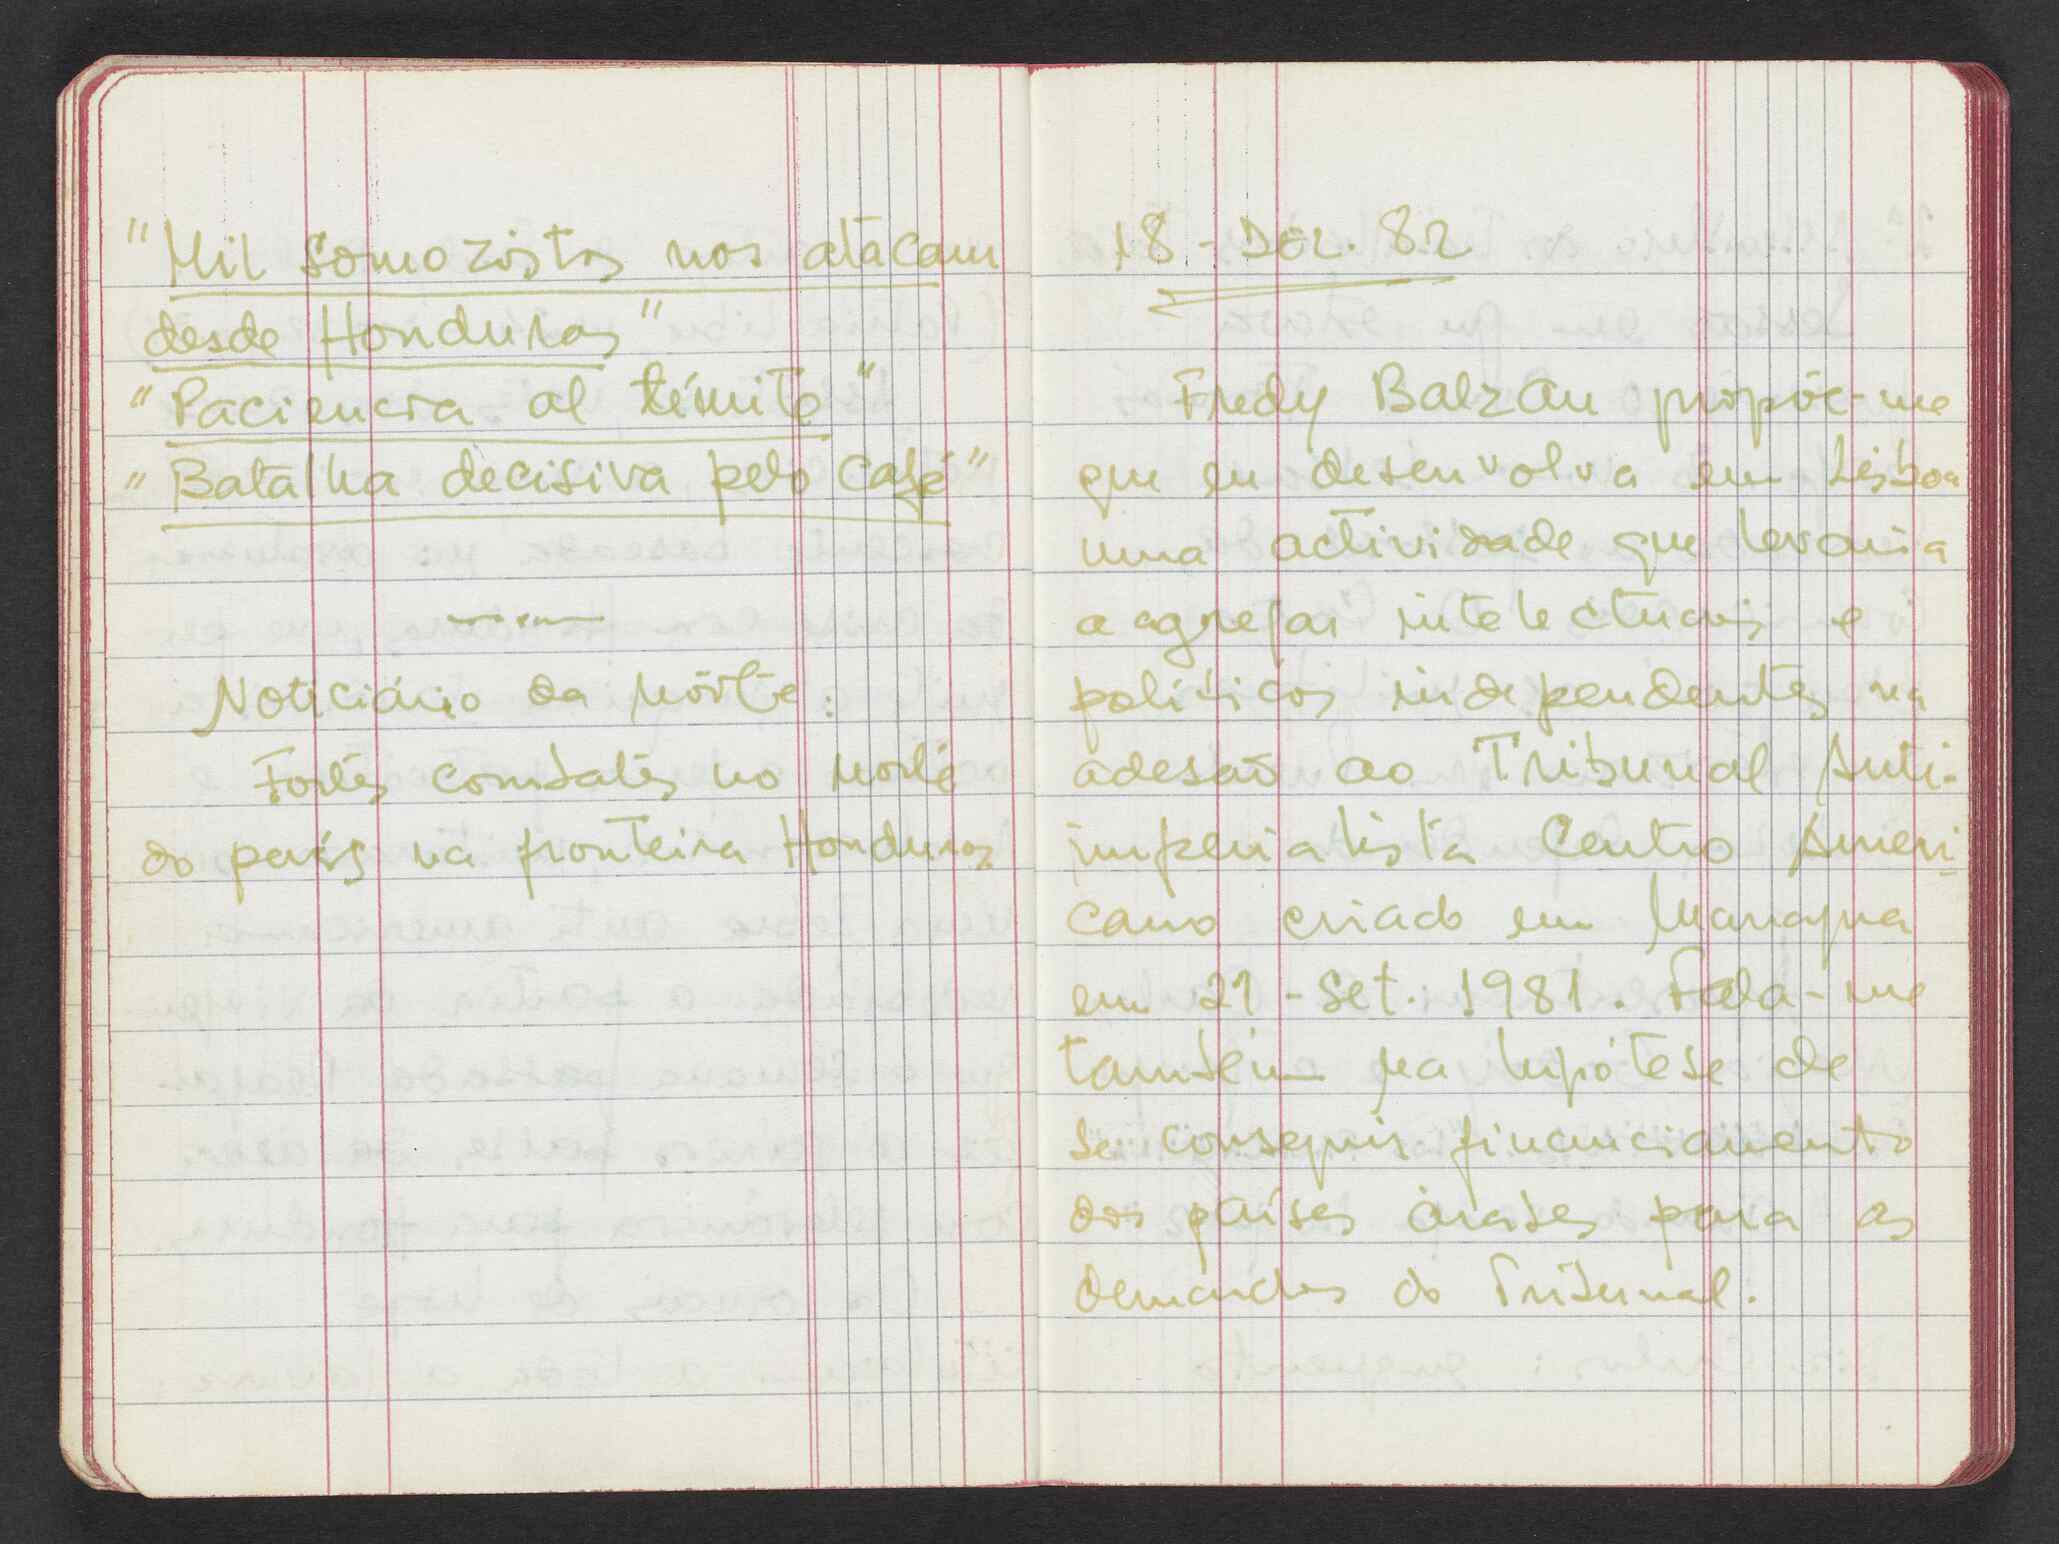 "Mil somozistas nos atacam
desde Honduras"
"Paciencia al límite"
"Batalha decisiva pelo café"
Noticiário da Nórte:
Fortes combates no norte
do país na fronteira Honduras
18 - Dez. 82
Fredy Balzan propõe-me
que eu desenvolva em Lisboa
uma actividade que levaria
a agregar intelectuais e
politicos independentes na
adesão ao Tribunal Anti-
imperialista Centro Ameri
cano criado em Managua
em 21 - Set. 1981. Fala-me
também na hipótese de
se conseguir financiamento
dos países árabes para as
demandas do Tribunal.